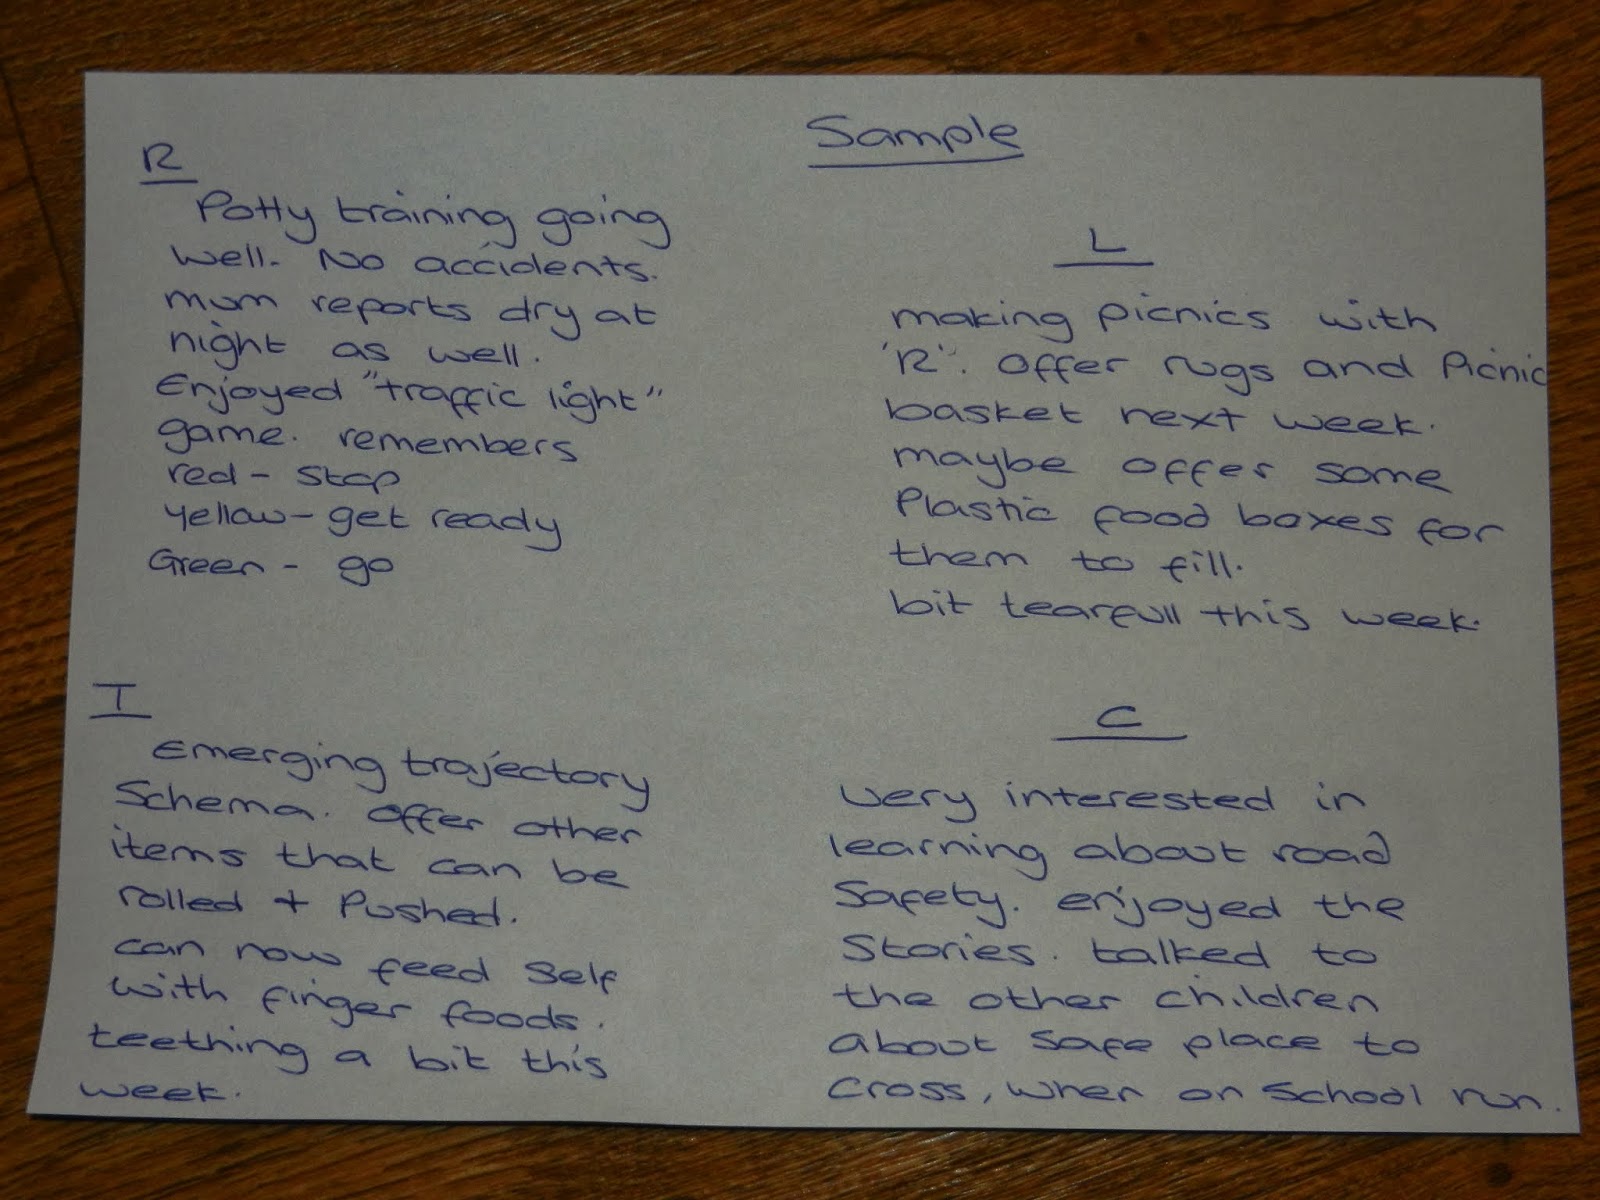 Sample
R
Potty training going
well. No accidents.
mum reports dry at
night as well.
Enjoyed "traffic light"
game. remembers
red - stop
yellow - get ready
Green - go
L
making picnics with
'R'. offer rugs and Picnic
basket next week.
maybe offer some
Plastic food boxes for
them to fill.
bit tearfull this week.
I
Emerging trajectory
Schema. offer other
items that can be
rolled + Pushed.
can now feed self
with finger foods.
teething a bit this
week.
C
very interested in
learning about road
Safety. enjoyed the
Stories. talked to
the other children
about safe place to
cross, when on School run.